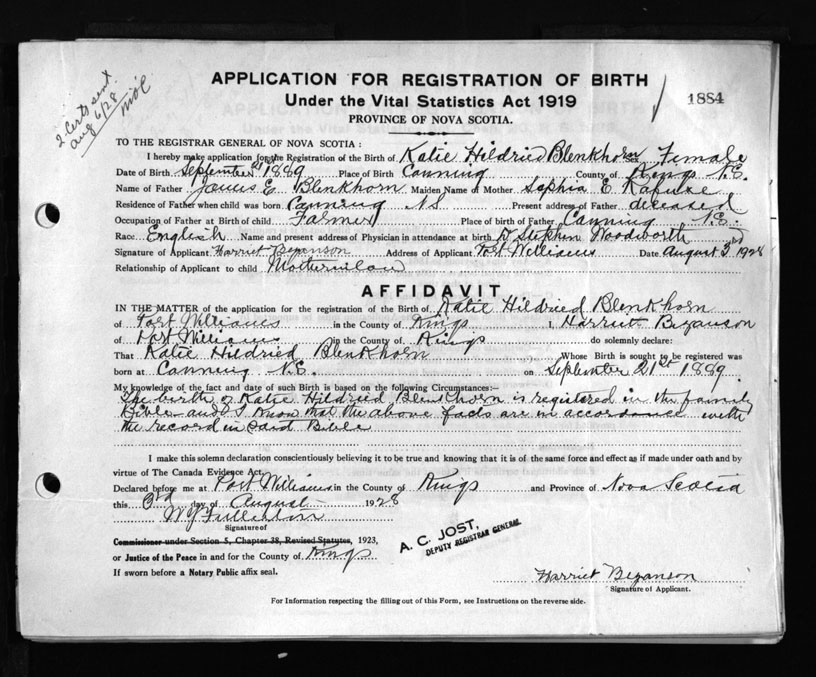 2 Certs sent
Aug 6/28
APPLICATION FOR REGISTRATION OF BIRTH
Under the Vital Statistics Act 1919
PROVINCE OF NOVA SCOTIA.
1884
TO THE REGISTRAR GENERAL OF NOVA SCOTIA :
I hereby make application for the Registration of the Birth of Katie Hildried Blenkhorn Female
Date of Birth September 21st 1889 Place of Birth Canning County of Kings N.S.
Name of Father James E Blenkhorn Maiden Name of Mother Sophia E
Residence of Father when child was born Canning NS Present address of Father deceased
Occupation of Father at Birth of child Farmer Place of birth of Father Canning N.S.
Race English Name and present address of Physician in attendance at birth Dr Stephen Woodworth
Signature of Applicant Harriet Bezanson Address of Applicant Port Williams Date August 3rd 1928
Relationship of Applicant to child Motherinlaw
AFFIDAVIT
IN THE MATTER of the application for the registration of the Birth of Katie Hildried Blenkhorn
of Port Williams in the County of Kings I, Harriet Bezanson
of Port Williams in the County of Kings do solemnly declare:
That Katie Hildried Blenkhorn Whose Birth is sought to be registered was
born at Canning N.S. on September 21st 1889.
My knowledge of the fact and date of such Birth is based on the following Circumstances:—
The birth of Katie Hildried Blenkhorn is registered in the family
Bible and I know that the above facts are in accordance with
the record in said Bible
I make this solemn declaration conscientiously believing it to be true and knowing that it is of the same force and effect as if made under oath and by
virtue of The Canada Evidence Act.
Declared before me at Port Williams in the County of Kings and Province of Nova Scotia
this 3rd day of August 1928
W Y Fullerton
Signature of
Commissioner under Section 5, Chapter 38, Revised Statutes, 1923,
or Justice of the Peace in and for the County of Kings
If sworn before a Notary Public affix seal.
A. C. JOST,
DEPUTY REGISTRAR GENERAL
Harriet Bezanson
Signature of Applicant.
For Information respecting the filling out of this Form, see Instructions on the reverse side.